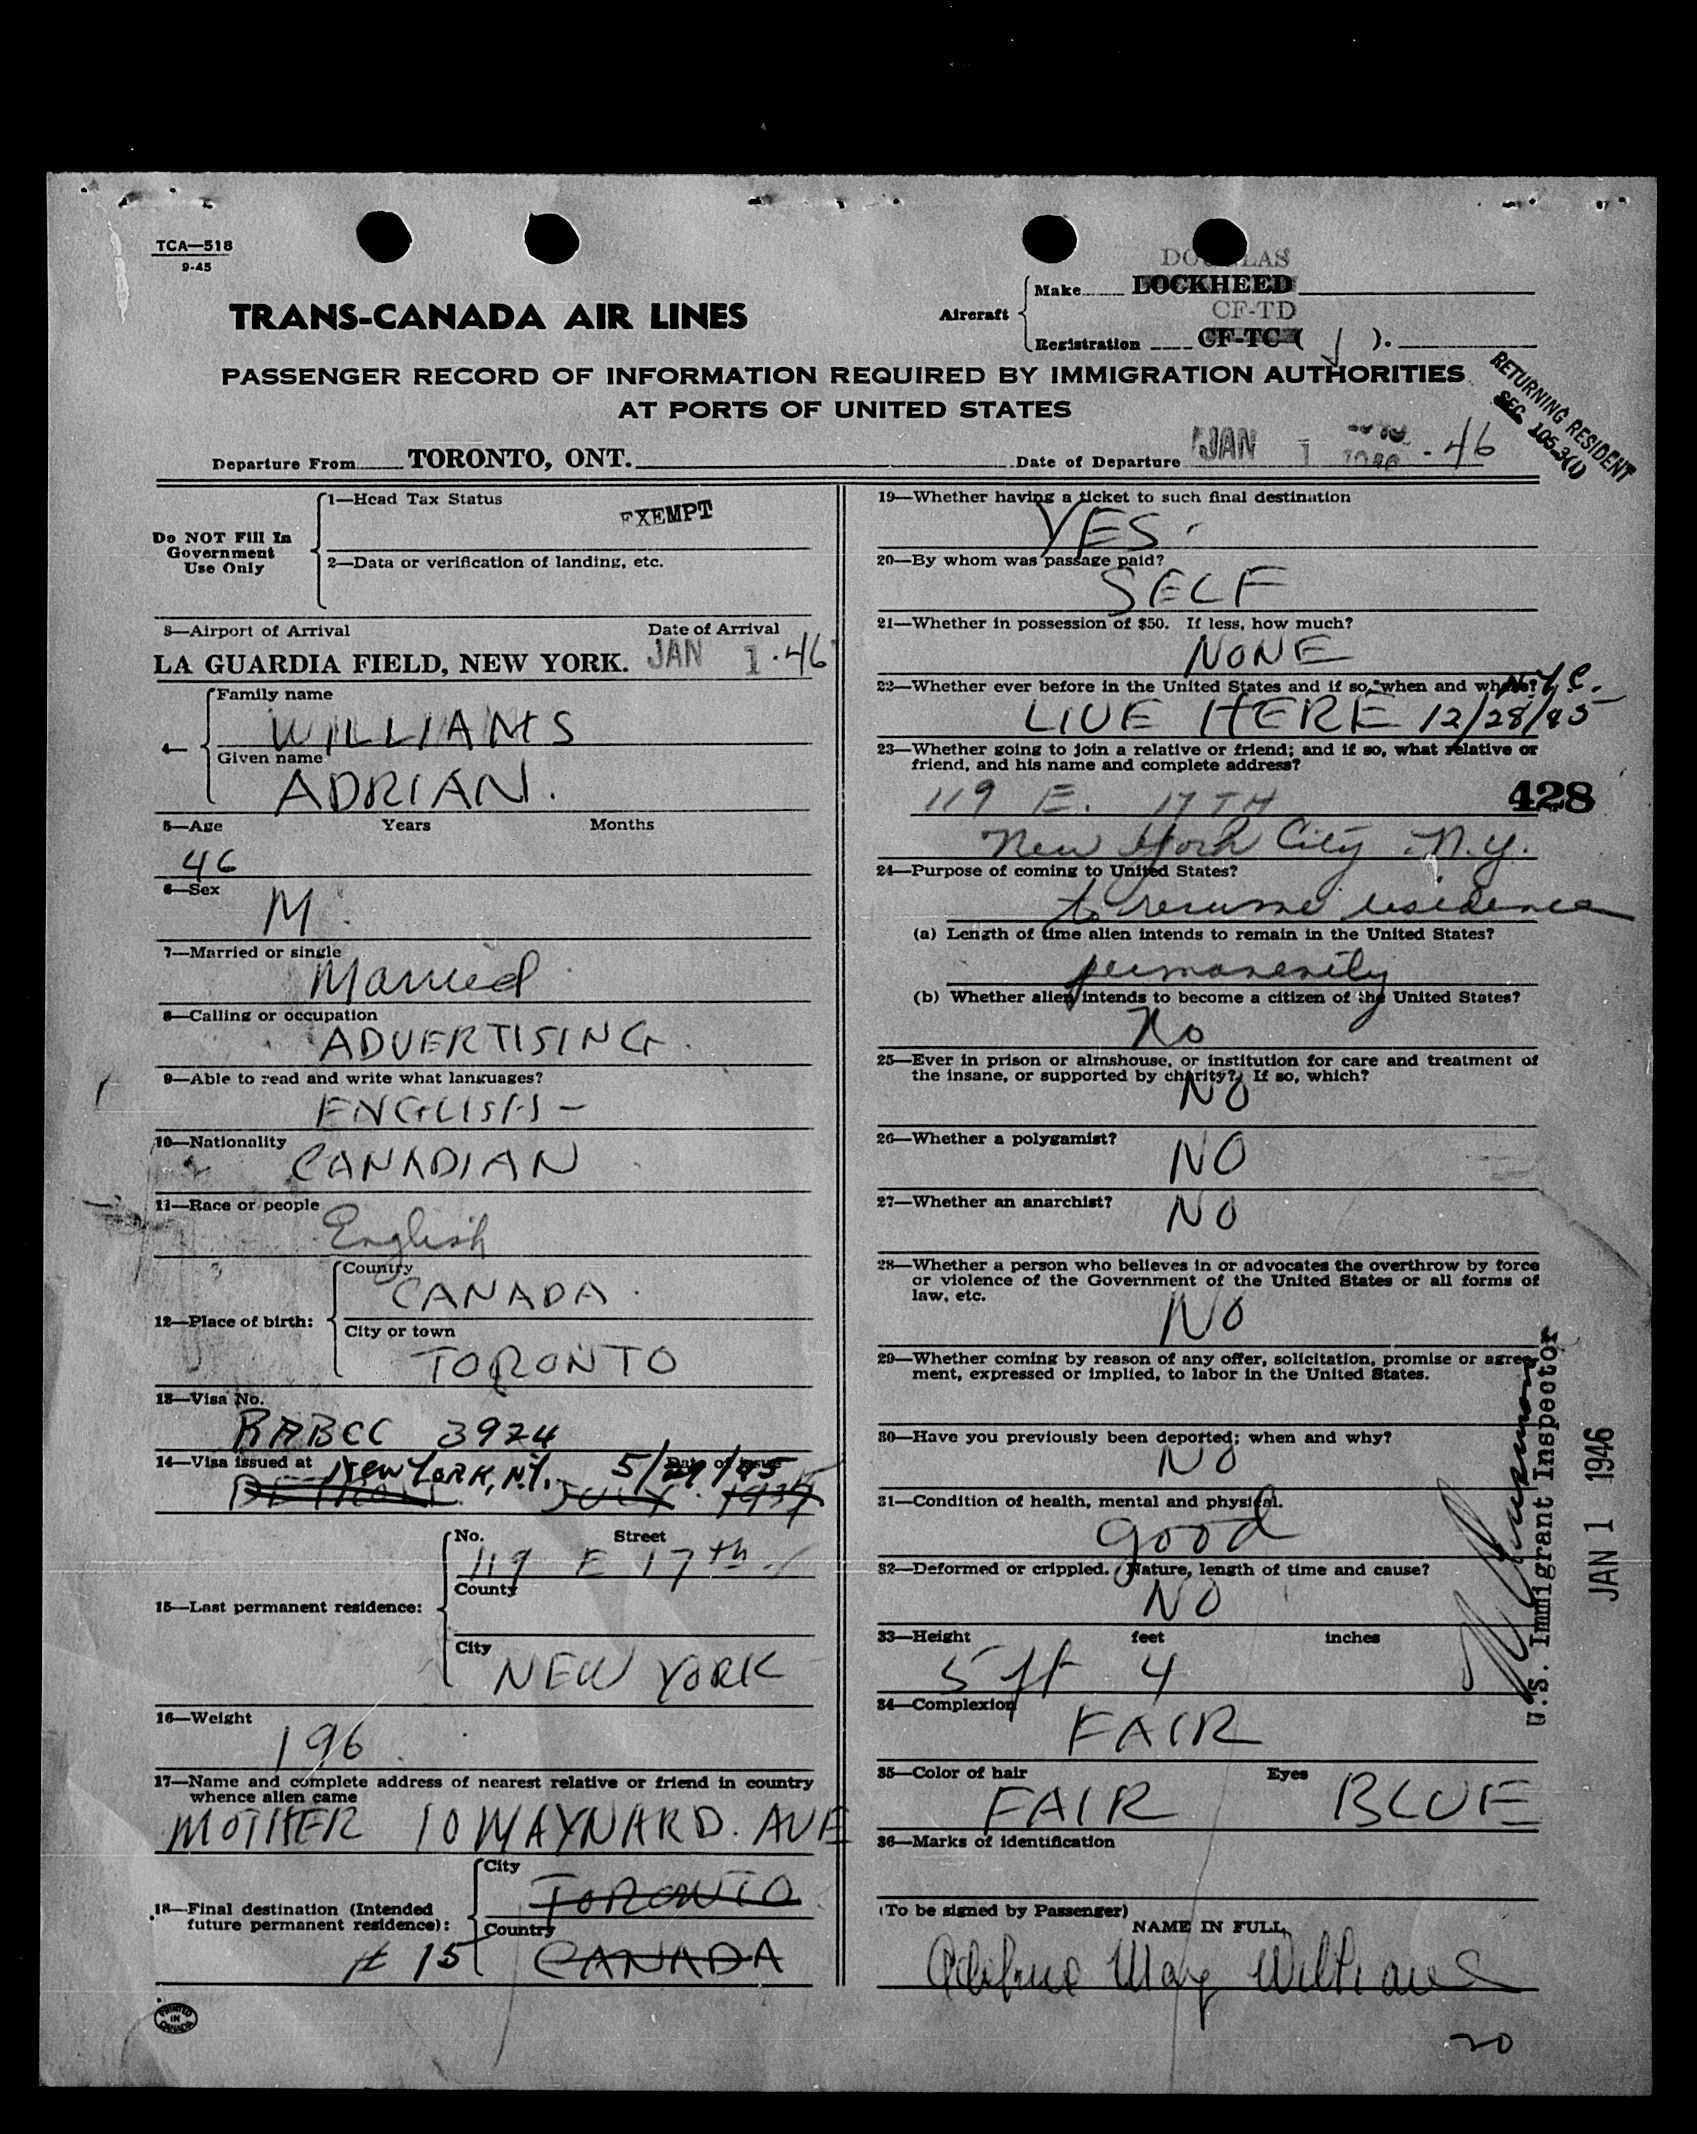 TCA—518
9-45
TRANS-CANADA AIR LINES
Aircraft
DOUGLAS
Make LOCKHEED
CF-TD
Registration CF-TC ( ).
PASSENGER RECORD OF INFORMATION REQUIRED BY IMMIGRATION AUTHORITIES
AT PORTS OF UNITED STATES
RETURNING RESIDENT
SEC. 105.3(1)
Departure From TORONTO, ONT.
Date of Departure JAN 1 -46
Do NOT Fill In
Government
Use Only
1—Head Tax Status
EXEMPT
2—Data or verification of landing, etc.
3—Airport of Arrival Date of Arrival
LA GUARDIA FIELD, NEW YORK. JAN 1 -46
4—
Family name
WILLIAMS
Given name
ADRIAN.
5—Age Years Months
46
6—Sex
M
7—Married or single
Married
8—Calling or occupation
ADVERTISING
9—Able to read and write what languages?
ENGLISH -
10—Nationality
CANADIAN
11—Race or people
English
12—Place of birth:
Country
CANADA
City or town
TORONTO
13—Visa No.
3924
14—Visa issued at Date of issue
New York, N.Y. 5/29/45
DETROIT JULY 1937
15—Last permanent residence:
No. Street
119 E 17th
County
City
NEW YORK
16—Weight
196
17—Name and complete address of nearest relative or friend in country
whence alien came
MOTHER 10 MAYNARD. AVE
18—Final destination (Intended
future permanent residence):
City
TORONTO
Country
# 15
CANADA
PRINTED
IN
CANADA
19—Whether having a ticket to such final destination
YES
20—By whom was passage paid?
SELF
21—Whether in possession of $50. If less, how much?
NONE
22—Whether ever before in the United States and if so, when and where?
N.Y.C.
LIVE HERE 12/28/45
23—Whether going to join a relative or friend; and if so, what relative or
friend, and his name and complete address?
119 E. 17TH
428
New York City N.Y.
24—Purpose of coming to United States?
to resume residence
(a) Length of time alien intends to remain in the United States?
permanently
(b) Whether alien intends to become a citizen of the United States?
No
25—Ever in prison or almshouse, or institution for care and treatment of
the insane, or supported by charity? If so, which?
NO
26—Whether a polygamist?
NO
27—Whether an anarchist?
NO
28—Whether a person who believes in or advocates the overthrow by force
or violence of the Government of the United States or all forms of
law, etc.
NO
29—Whether coming by reason of any offer, solicitation, promise or agree-
ment, expressed or implied, to labor in the United States.
30—Have you previously been deported; when and why?
NO
31—Condition of health, mental and physical.
good
32—Deformed or crippled. Nature, length of time and cause?
NO
33—Height feet inches
5 ft 4
34—Complexion
FAIR
35—Color of hair Eyes
FAIR BLUE
36—Marks of identification
(To be signed by Passenger)
NAME IN FULL
May Williams
20
U.S. Immigrant Inspector
JAN 1 1946